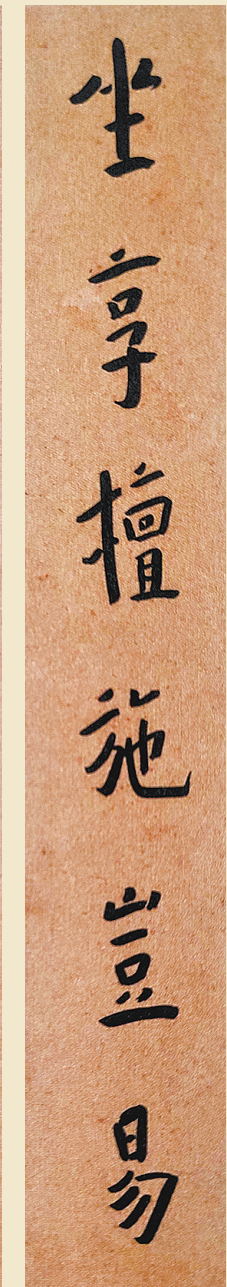 坐享檀施豈易